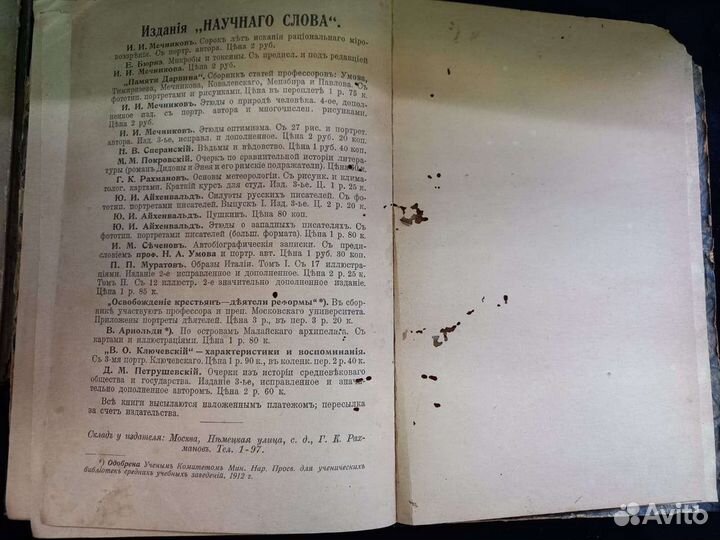 Изданія „НАУЧНАГО СЛОВА“.
И. И. Мечниковъ. Сорокъ лѣтъ исканія раціональнаго міро-
воззрѣнія. Съ портр. автора. Цѣна 2 руб.
Е. Бюрнэ. Микробы и токсины. Съ предисл. и подъ редакціей
И. И. Мечникова. Цѣна 2 руб.
„Памяти Дарвина“. Сборникъ статей профессоровъ: Умова,
Тимирязева, Мечникова, Ковалевскаго, Мензбира и Павлова. Съ
фототип. портретами и рисунками. Цѣна въ переплетѣ 1 р. 75 к.
И. И. Мечниковъ. Этюды о природѣ человѣка. 4-ое, допол-
ненное изд. съ портр. автора и многочислен. рисунками.
Цѣна 2 руб.
И. И. Мечниковъ. Этюды оптимизма. Съ 27 рис. и портрет.
автора. Изд. 3-ье, исправл. и дополненное. Цѣна 2 руб. 20 коп.
Н. В. Сперанскій. Вѣдьмы и вѣдовство. Цѣна 1 руб. 40 коп.
М. М. Покровскій. Очеркъ по сравнительной исторіи литера-
туры (романъ Дидоны и Энея и его римскіе подражатели). Цѣна к.
Г. К. Рахмановъ. Основы метеорологіи. Съ рисунк. и климато-
логич. картами. Краткій курсъ для студ. Изд. 3-ье. Ц. 1 р. 25 к.
Ю. И. Айхенвальдъ. Силуэты русскихъ писателей. Съ фо-
тотип. портретами писателей. Выпускъ I. Изд. 3-ье. Ц. 2 р. 20 к.
Ю. И. Айхенвальдъ. Пушкинъ. Цѣна 80 коп.
Ю. И. Айхенвальдъ. Этюды о западныхъ писателяхъ. Съ
фототип. портретами писателей (больш. формата). Цѣна 1 р. 80 к.
И. М. Сѣченовъ. Автобіографическія записки. Съ преди-
словіемъ проф. Н. А. Умова и портр. авт. Цѣна 1 руб. 30 коп.
П. П. Муратовъ. Образы Италіи. Томъ I. Съ 17 иллюстра-
ціями. Изданіе 2-е исправленное и дополненное. Цѣна 2 р. 25 к.
Томъ II. Съ 12 иллюстр. 2-е значительно дополненное изданіе.
Цѣна 1 р. 85 к.
„Освобожденіе крестьянъ—дѣятели реформы“ *). Въ сбор-
никѣ участвуютъ профессора и преп. Московскаго университета.
Приложены портреты дѣятелей. Цѣна 3 р., въ пер. 3 р. 20 к.
В. Арнольди *). По островамъ Малайскаго архипелага. Съ
картами и иллюстраціями. Цѣна 1 р. 80 к.
„В. О. Ключевскій“—характеристики и воспоминанія.
Съ 3-мя портр. Ключевскаго. Цѣна 1 р. 90 к., въ коленк. пер. 2 р. 40 к.
Д. М. Петрушевскій. Очерки изъ исторіи средневѣковаго
общества и государства. Изданіе 3-ье, исправленное и значи-
тельно дополненное авторомъ. Цѣна 2 р. 60 к.
Всѣ книги высылаются наложеннымъ платежомъ; пересылка
за счетъ издательства.
Складъ у издателя: Москва, Нѣмецкая улица, с. д., Г. К. Рах-
мановъ. Тел. 1-97.
*) Одобрена Ученымъ Комитетомъ Мин. Нар. Просв. для ученическихъ
библіотекъ среднихъ учебныхъ заведеній, 1912 г.
Avito